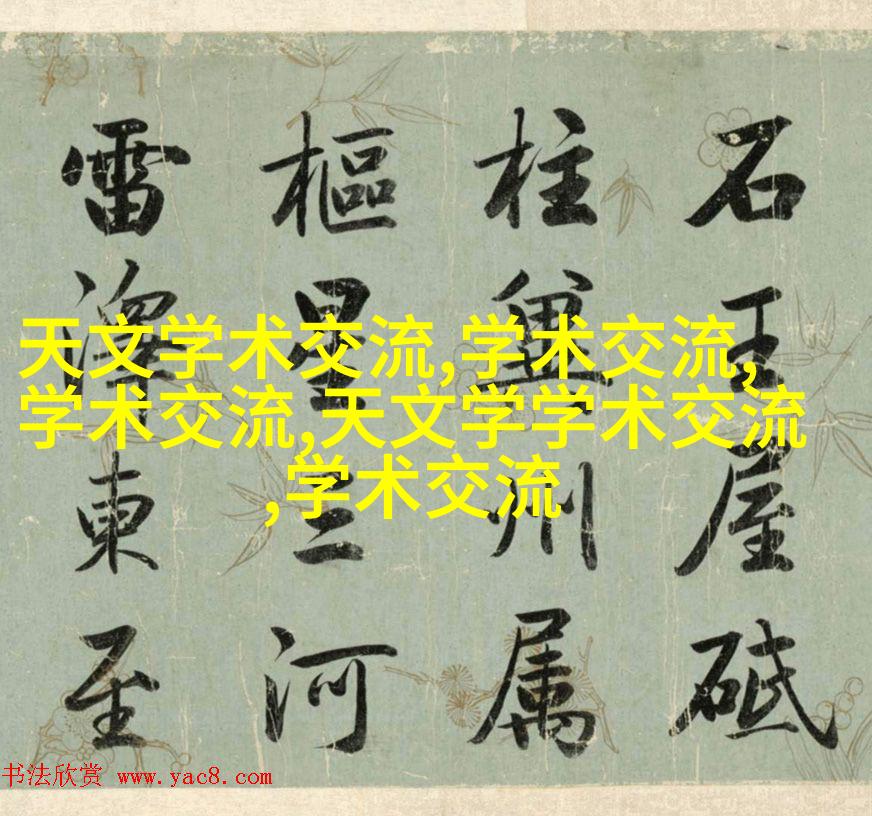 石王屋砥
柱與州属
樞星三河
雷澤東至
天文学术交流,学术交流,
学术交流,天文学学术交流
,学术交流
书法欣赏 www.yac8.com